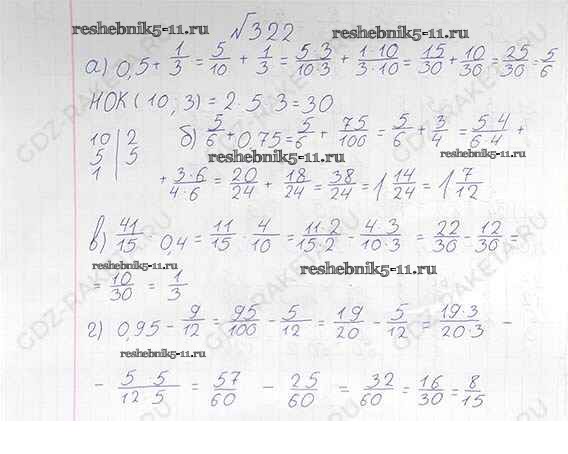 reshebnik5-11.ru √322 reshebnik5-11.ru
а) 0,5 + 1/3 = 5/10 + 1/3 = 5·3/10·3 + 1·10/3·10 = 15/30 + 10/30 = 25/30 = 5/6
НОК(10; 3) = 2·5·3 = 30
10 | 2 б) 5/6 + 0,75 = 5/6 + 75/100 = 5/6 + 3/4 = 5·4/6·4 +
5 | 5 reshebnik5-11.ru
1 | + 3·6/4·6 = 20/24 + 18/24 = 38/24 = 1 14/24 = 1 7/12
в) 41/15 0,4 = 11/15 - 4/10 = 11·2/15·2 - 4·3/10·3 = 22/30 - 12/30 =
reshebnik5-11.ru
= 10/30 = 1/3 reshebnik5-11.ru
г) 0,95 - 9/12 = 95/100 - 5/12 = 19/20 - 5/12 = 19·3/20·3 -
reshebnik5-11.ru
- 5 5/12 5 = 57/60 - 25/60 = 32/60 = 16/30 = 8/15
GDZ-RAKETA.RU